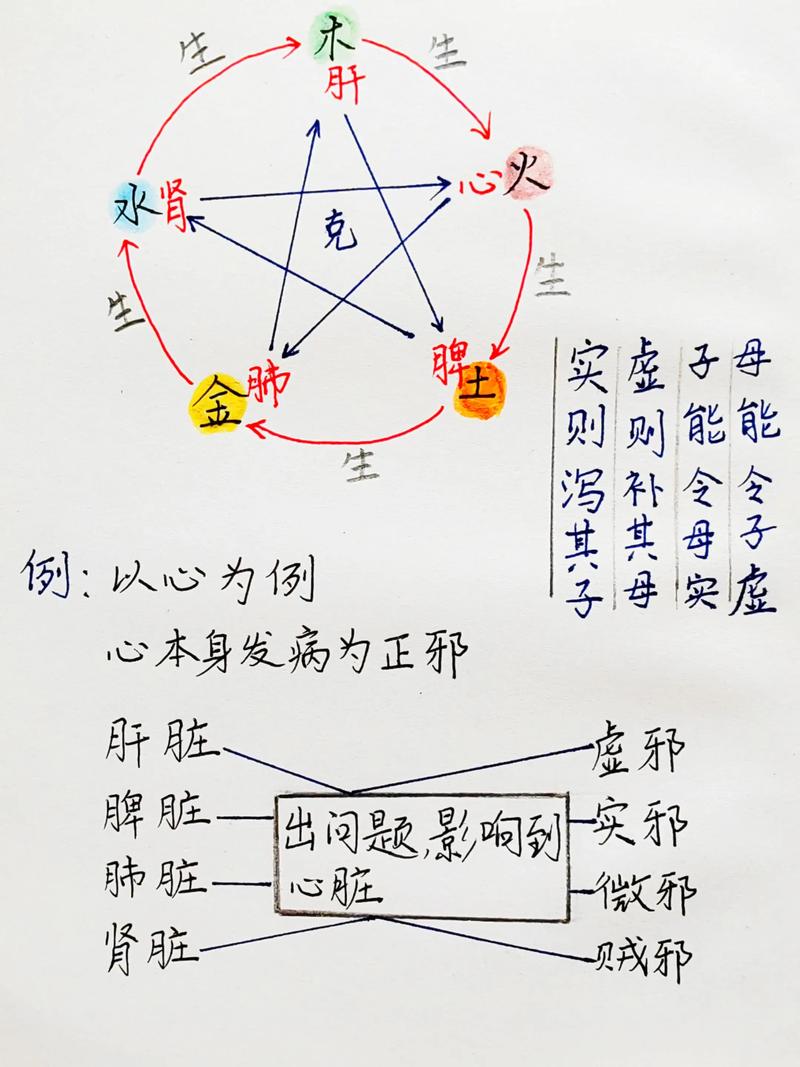 木
肝
生
生
水肾
心火
克
生
生
金肺
脾土
生
母能令子虚
子能令母实
虚则补其母
实则泻其子
例：以心为例
心本身发病为正邪
肝脏
虚邪
脾脏
出问题,影响到
实邪
肺脏
心脏
微邪
肾脏
贼邪